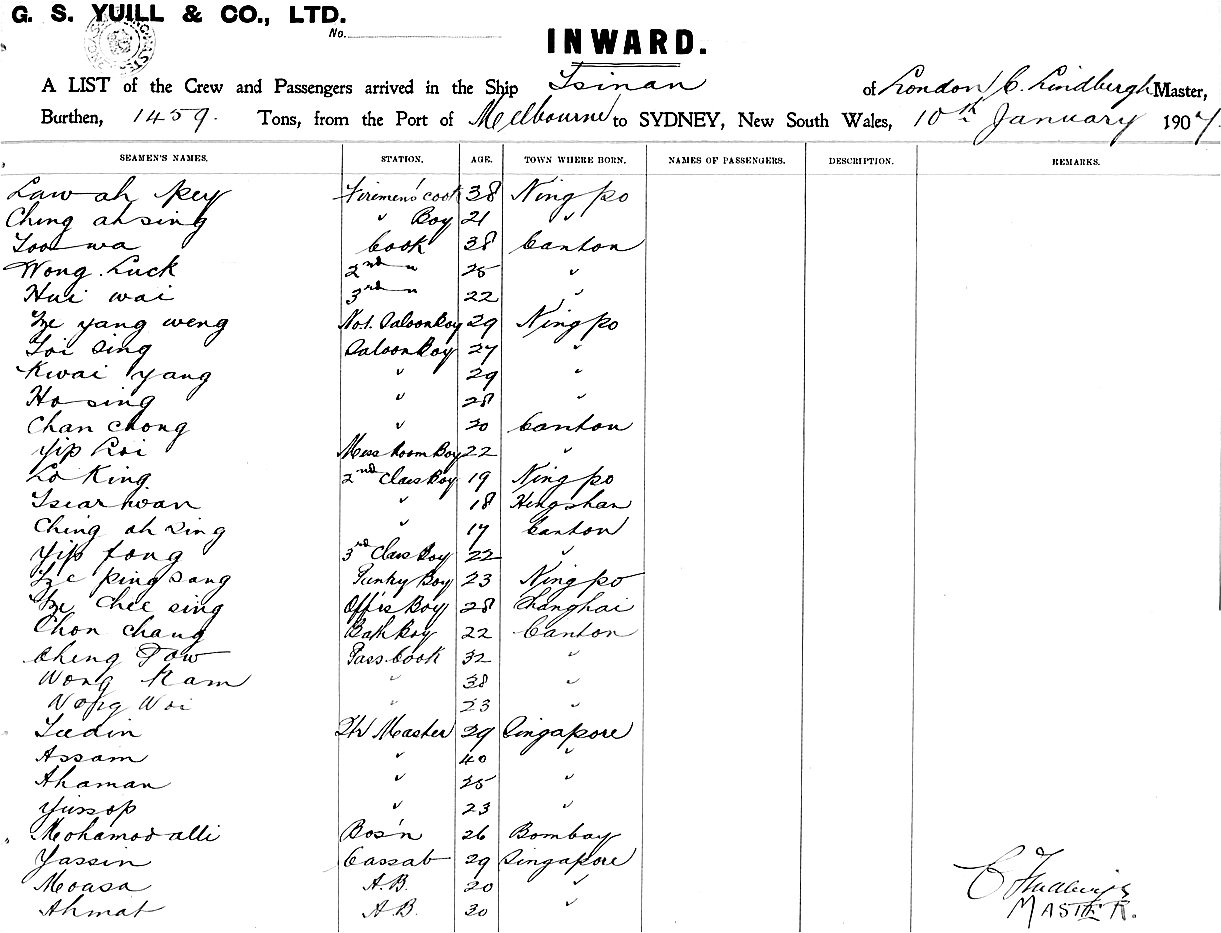 G. S. YUILL & CO., LTD.
No.
INWARD.
A LIST of the Crew and Passengers arrived in the Ship Tsinan of London, C. Lindbergh Master,
Burthen, 1459. Tons, from the Port of Melbourne to SYDNEY, New South Wales, 10th January 1907.
SEAMEN'S NAMES. STATION. AGE. TOWN WHERE BORN. NAMES OF PASSENGERS. DESCRIPTION. REMARKS.
Law ah Key Firemen's cook 38 Ningpo
Ching ah sing " Boy 21 "
Loo wa Cook 38 Canton
Wong Luck 2nd " 25 "
Hui wai 3rd " 22 "
yang weng No1. Saloon Boy 29 Ningpo
sing Saloon Boy 27 "
Kwai yang " 29 "
Ho sing " 28 "
Chan chong " 20 Canton
Yip Loi Mess Room Boy 22 "
Lo King 2nd Class Boy 19 Ningpo
" 18 Hingshan
Ching ah " 17 Canton
Yip fong 3rd Class Boy 22 "
ping sang Punky Boy 23 Ningpo
Chee sing Offis Boy 28 Shanghai
Chon chang Bath Boy 22 Canton
Cheng Pass Cook 32 "
Wong Kam " 38 "
Woi " 23 "
Master 29 Singapore
Assam " 40 "
Ahaman " 25 "
Yussop " 23 "
Mohamod alli Bos'n 26 Bombay
Yassin Cassab 29 Singapore
Moasa A.B. 20 "
Ahmat A.B. 30 "
MASTER.